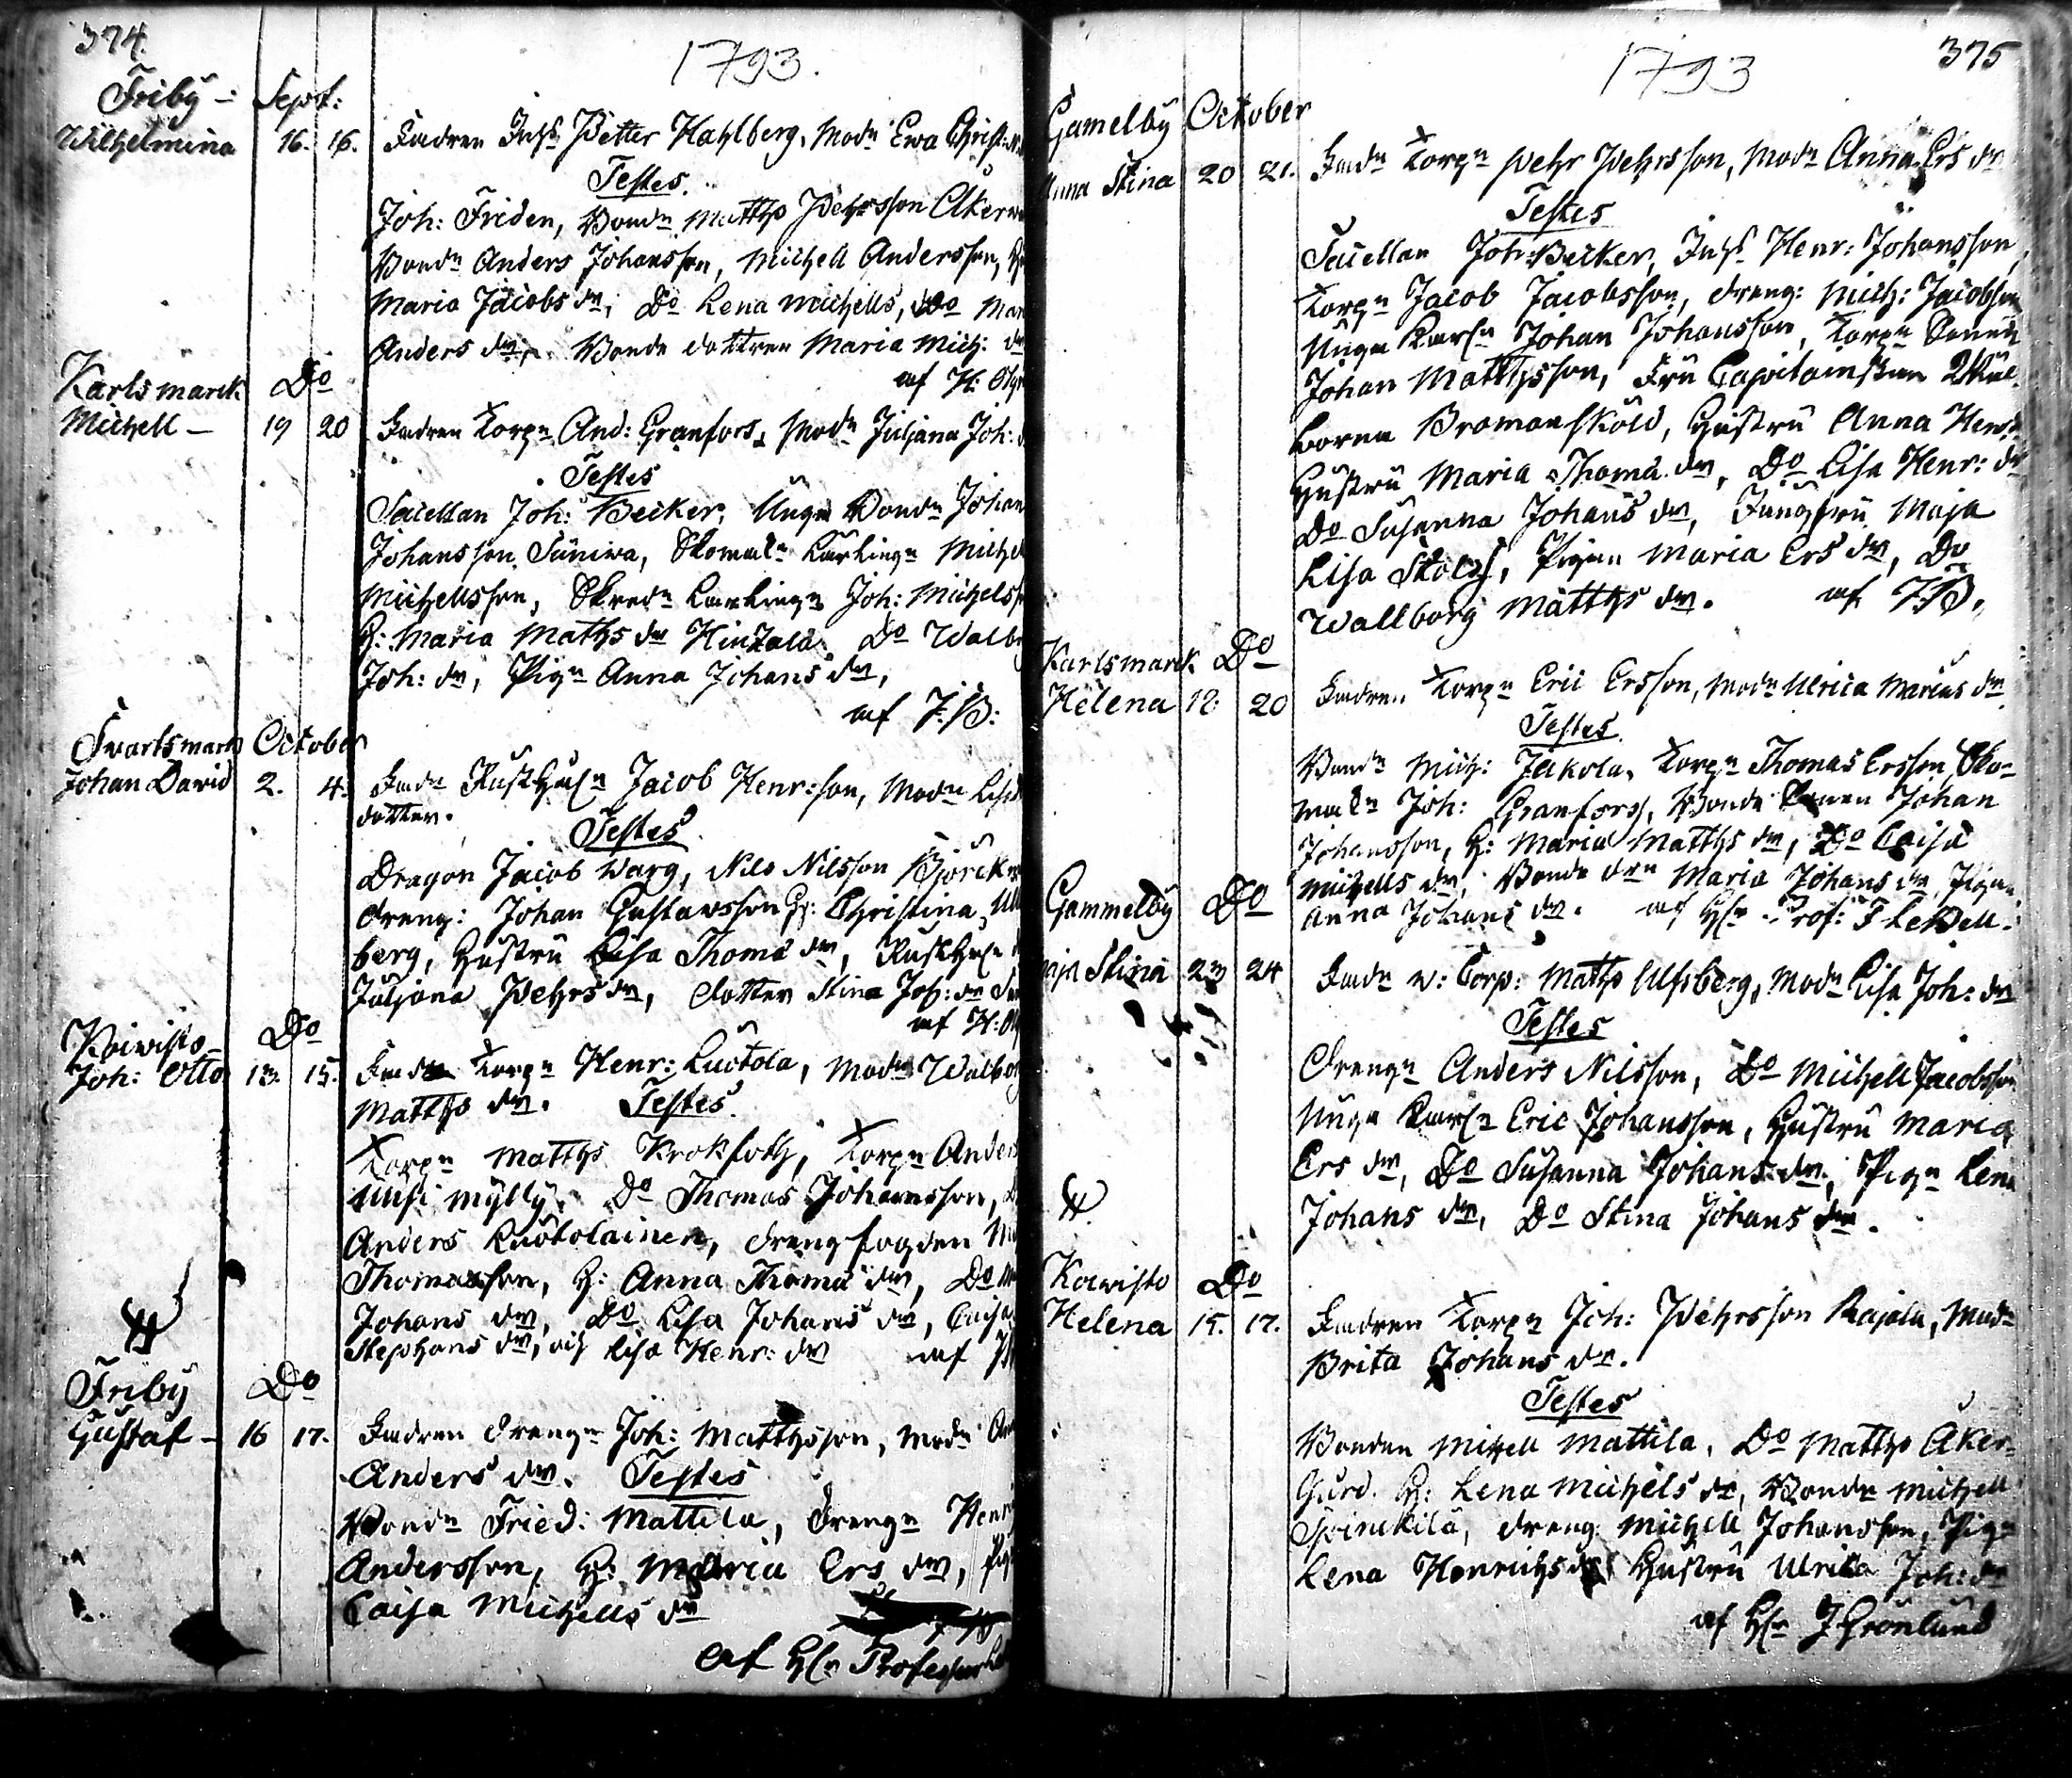 374.
1793.
Friby - Sept:
Wilhelmina 16. 16. Fadren Inhs Petter Hahlberg, Modn Ewa Christ:
Testes.
Joh: Friden, Bondn Matths Pehrsson Åker
Bondn Anders Johansson, Michell Andersson,
Maria Jacobs dr, Do Lena Michells, Do Mar
Anders dr, Bonde dottren Maria Mich: dr
af H:
Karlsmarck Do
Michell - 19 20 Fadren Torpn And: Granfors, Modn Juljana Joh:
Testes
Sacellan Joh: Becker, Unga Bondn Johan
Johansson Suniwa, Skomakn Lärlingn Michel
Michellsson, Skredn Lärlingn Joh: Michelss
H: Maria Maths dr Hinkala, Do Walb
Joh: dr, Pign Anna Johans dr,
af J:B:
Swartsmark October
Johan David 2. 4. Fadn Rusthåln Jacob Henr:son, Modn Lisa
dotter.
Testes
Dragon Jacob Warg, Nils Nilsson Björck
dreng: Johan Gustavsson H: Christina
berg, Hustru Lisa Thoma dr, Rusthåln
Juljana Pehrs dr, dotter Stina Joh: dr
af H:
Koivisto - Do
Joh: Otto 13. 15. Fadn Torpn Henr: Luotola, Modn Walbor
Matths dr. Testes
Torpn Matths Krokfoth, Torpn Anders
Uusi mylly, Do Thomas Johansson,
Anders Luotolainen, drengfogden
Thomasson, H: Anna Thoma dr, Do
Johans dr, Do Lisa Johans dr, Caisa
Stephans dr, och Lisa Henr: dr af
Friby Do
Gustaf - 16 17. Fadren drengn Joh: Matthsson, Modn
Anders dr. Testes
Bondn Fried: Mattila, drengn Henr
Andersson, H: Maria Ers dr,
Caisa Michells dr
af Hr Professor
375
1793
Gamelby October
Anna Stina 20 21. Fadn Torpn Pehr Pehrsson, Modn Anna Ers dr
Testes
Sacellan Joh: Becker, Inhs Henr: Johansson,
Torpn Jacob Jacobsson, dreng: Mich: Jacobson
Unga Karln Johan Johansson, Torpn Sonen
Johan Matthsson, Fru Capitainskan
borna Bromanskiöld, Hustru Anna Henr:
Hustru Maria Thoma dr, Do Lisa Henr: dr
Do Susanna Johans dr, Jungfru Maja
Lisa Stoltz, Pigan Maria Ers dr, Do
Wallborg Matths dr. af J:B.
Karlsmarck Do
Helena 18. 20 Fadren Torpn Eric Ersson, Modn Ulrica Marius dr
Testes
Bondn Mich: Jakola, Torpn Thomas Ersson Sko-
makn Joh: Granfors, Bonde Sonen Johan
Johansson, H: Maria Matths dr, Do Caisa
Michells dr, Bonde drn Maria Johans dr, Pigan
Anna Johans dr. af Hr Prof:
Gammelby Do
Maja Stina 23 24 Fadn v: Corp: Matths Ulfsberg, Modn Lisa Joh: dr
Testes
Drengn Anders Nilsson, Do Michell Jacobsson
Unga Karln Eric Johansson, Hustru Maria
Ers dr, Do Susanna Johans dr, Pign Lena
Johans dr, Do Stina Johans dr.
Koivisto Do
Helena 15. 17. Fadren Torpn Joh: Pehrsson Rajala, Modn
Brita Johans dr.
Testes
Bonden Michell Mattila, Do Matths Åker-
gård, H: Lena Michels dr, Bondn Michell
Spinckilä, dreng: Michell Johansson, Pign
Lena Henrichs dr Hustru Ulrica Joh: dr
af Hr J Grönlund